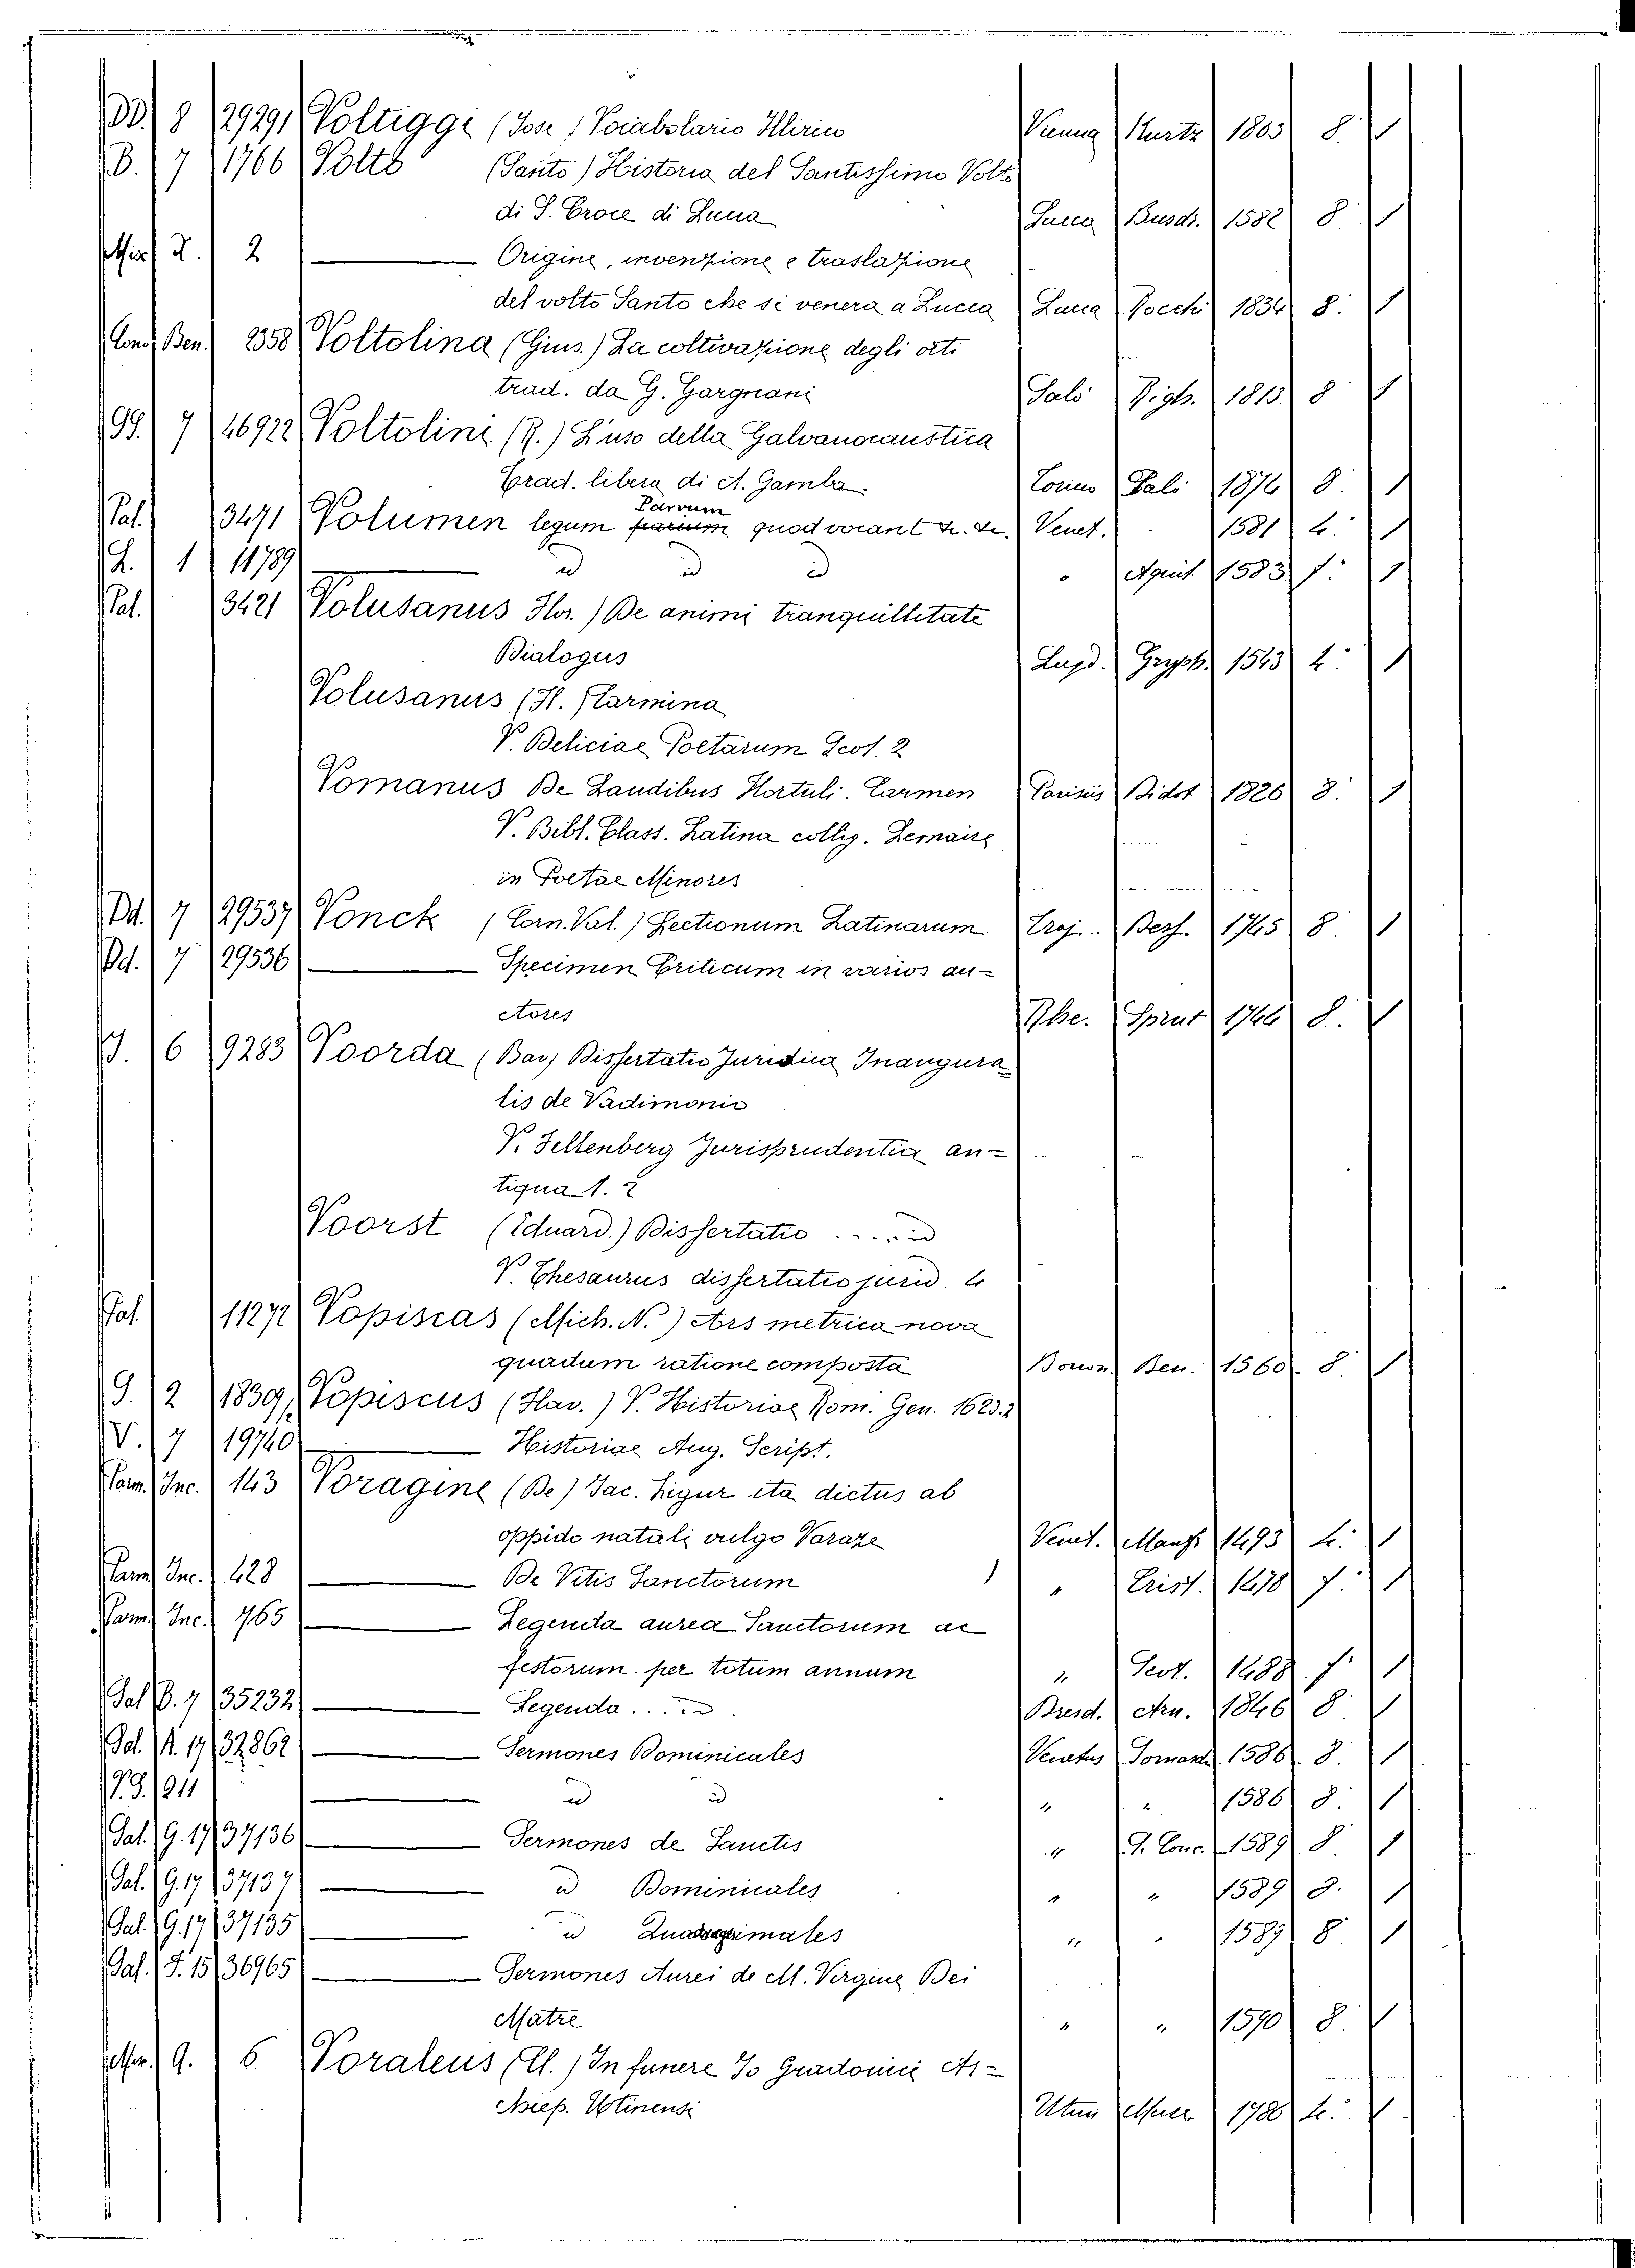 DD. 8 29291 Voltiggi (Jose) Vocabolario Illirico Vienna Kurtz 1803 8. 1
B. 7 1766 Volto (Santo) Historia del Santissimo Volto
di S. Croce di Lucca Lucca Busdr. 1582 8 1
Misc. Z. 2 Origine, invenzione e traslazione
del volto Santo che si venera a Lucca Lucca Rocchi 1834 8. 1
Cons. Ben. 2358 Voltolina (Gius.) La coltivazione degli orti
trad. da G. Gargnani Salò Righ. 1813 8 1
99. 7 46922 Voltolini (R.) L'uso della Galvanocaustica
Trad. libera di A. Gamba. Torino Fali 1874 8. 1
Pal. 3471 Volumen legum Parvum quod vocant &. &. Venet. 1581 4. 1
Z. 1 11789 id id id " Aquit. 1583 f. 1
Pal. 3421 Volusanus Flor.) De animi tranquillitate
Dialogus Lugd. Gryph. 1543 4. 1
Volusanus (Fl.) Carmina
V. Deliciae Poetarum Scot. 2
Vomanus De Laudibus Hortuli. Carmen Parisiis Didot 1826 8. 1
V. Bibl. Class. Latina collig. Lemaire
in Poetae Minores
Dd. 7 29537 Vonck (Corn. Val.) Lectionum Latinarum Traj. Bess. 1745 8. 1
Dd. 7 29536 Specimen Criticum in varios au-
ctores Rhe. Sprut 1744 8. 1
J. 6 9283 Voorda (Bav) Dissertatio Juridica Inaugura
lis de Vadimonio
V. Fellenberg Jurisprudentia an-
tiqua t. 2
Voorst (Eduard.) Dissertatio .... id
V. Thesaurus dissertatio jurid. 4
Pal. 11272 Vopiscas (Mich. N.) Ars metrica nova
quadum ratione composta Bonon. Ben. 1560. 8. 1
G. 2 1839 Vopiscus (Flav.) V. Historiae Rom. Gen. 1623. 2
V. 7 19740 Historiae Aug. Script.
Parm. Inc. 143 Voragine (De) Jac. Ligur ita dictus ab
oppido natali vulgo Varaze Venet. Manf. 1493 4. 1
Parm. Inc. 428 De Vitis Sanctorum " Crist. 1478 f. 1
Parm. Inc. 765 Legenda aurea Sanctorum ac
festorum per totum annum " Scot. 1488 f. 1
Sal. B. 7 35232 Legenda .... id Dresd. Arn. 1846 8. 1
Sal. A. 17 32862 Sermones Dominicales Venetiis Somasch. 1586 8. 1
P. G. 1911 id id " " 1586 8. 1
Sal. G. 17 37136 Sermones de Sanctis " J. Conc. 1589 8. 1
Sal. G. 17 37137 id Dominicales " " 1589 8. 1
Sal. G. 17 37135 id Quadragesimales " " 1589 8 1
Sal. F. 15 36965 Sermones Aurei de M. Virgine Dei
Matre " " 1590 8. 1
Misc. 9. 6. Voraleus (Cl.) In funere Jo Gradonici Ar-
chiep. Utinensi Utini Murer. 1786 4. 1